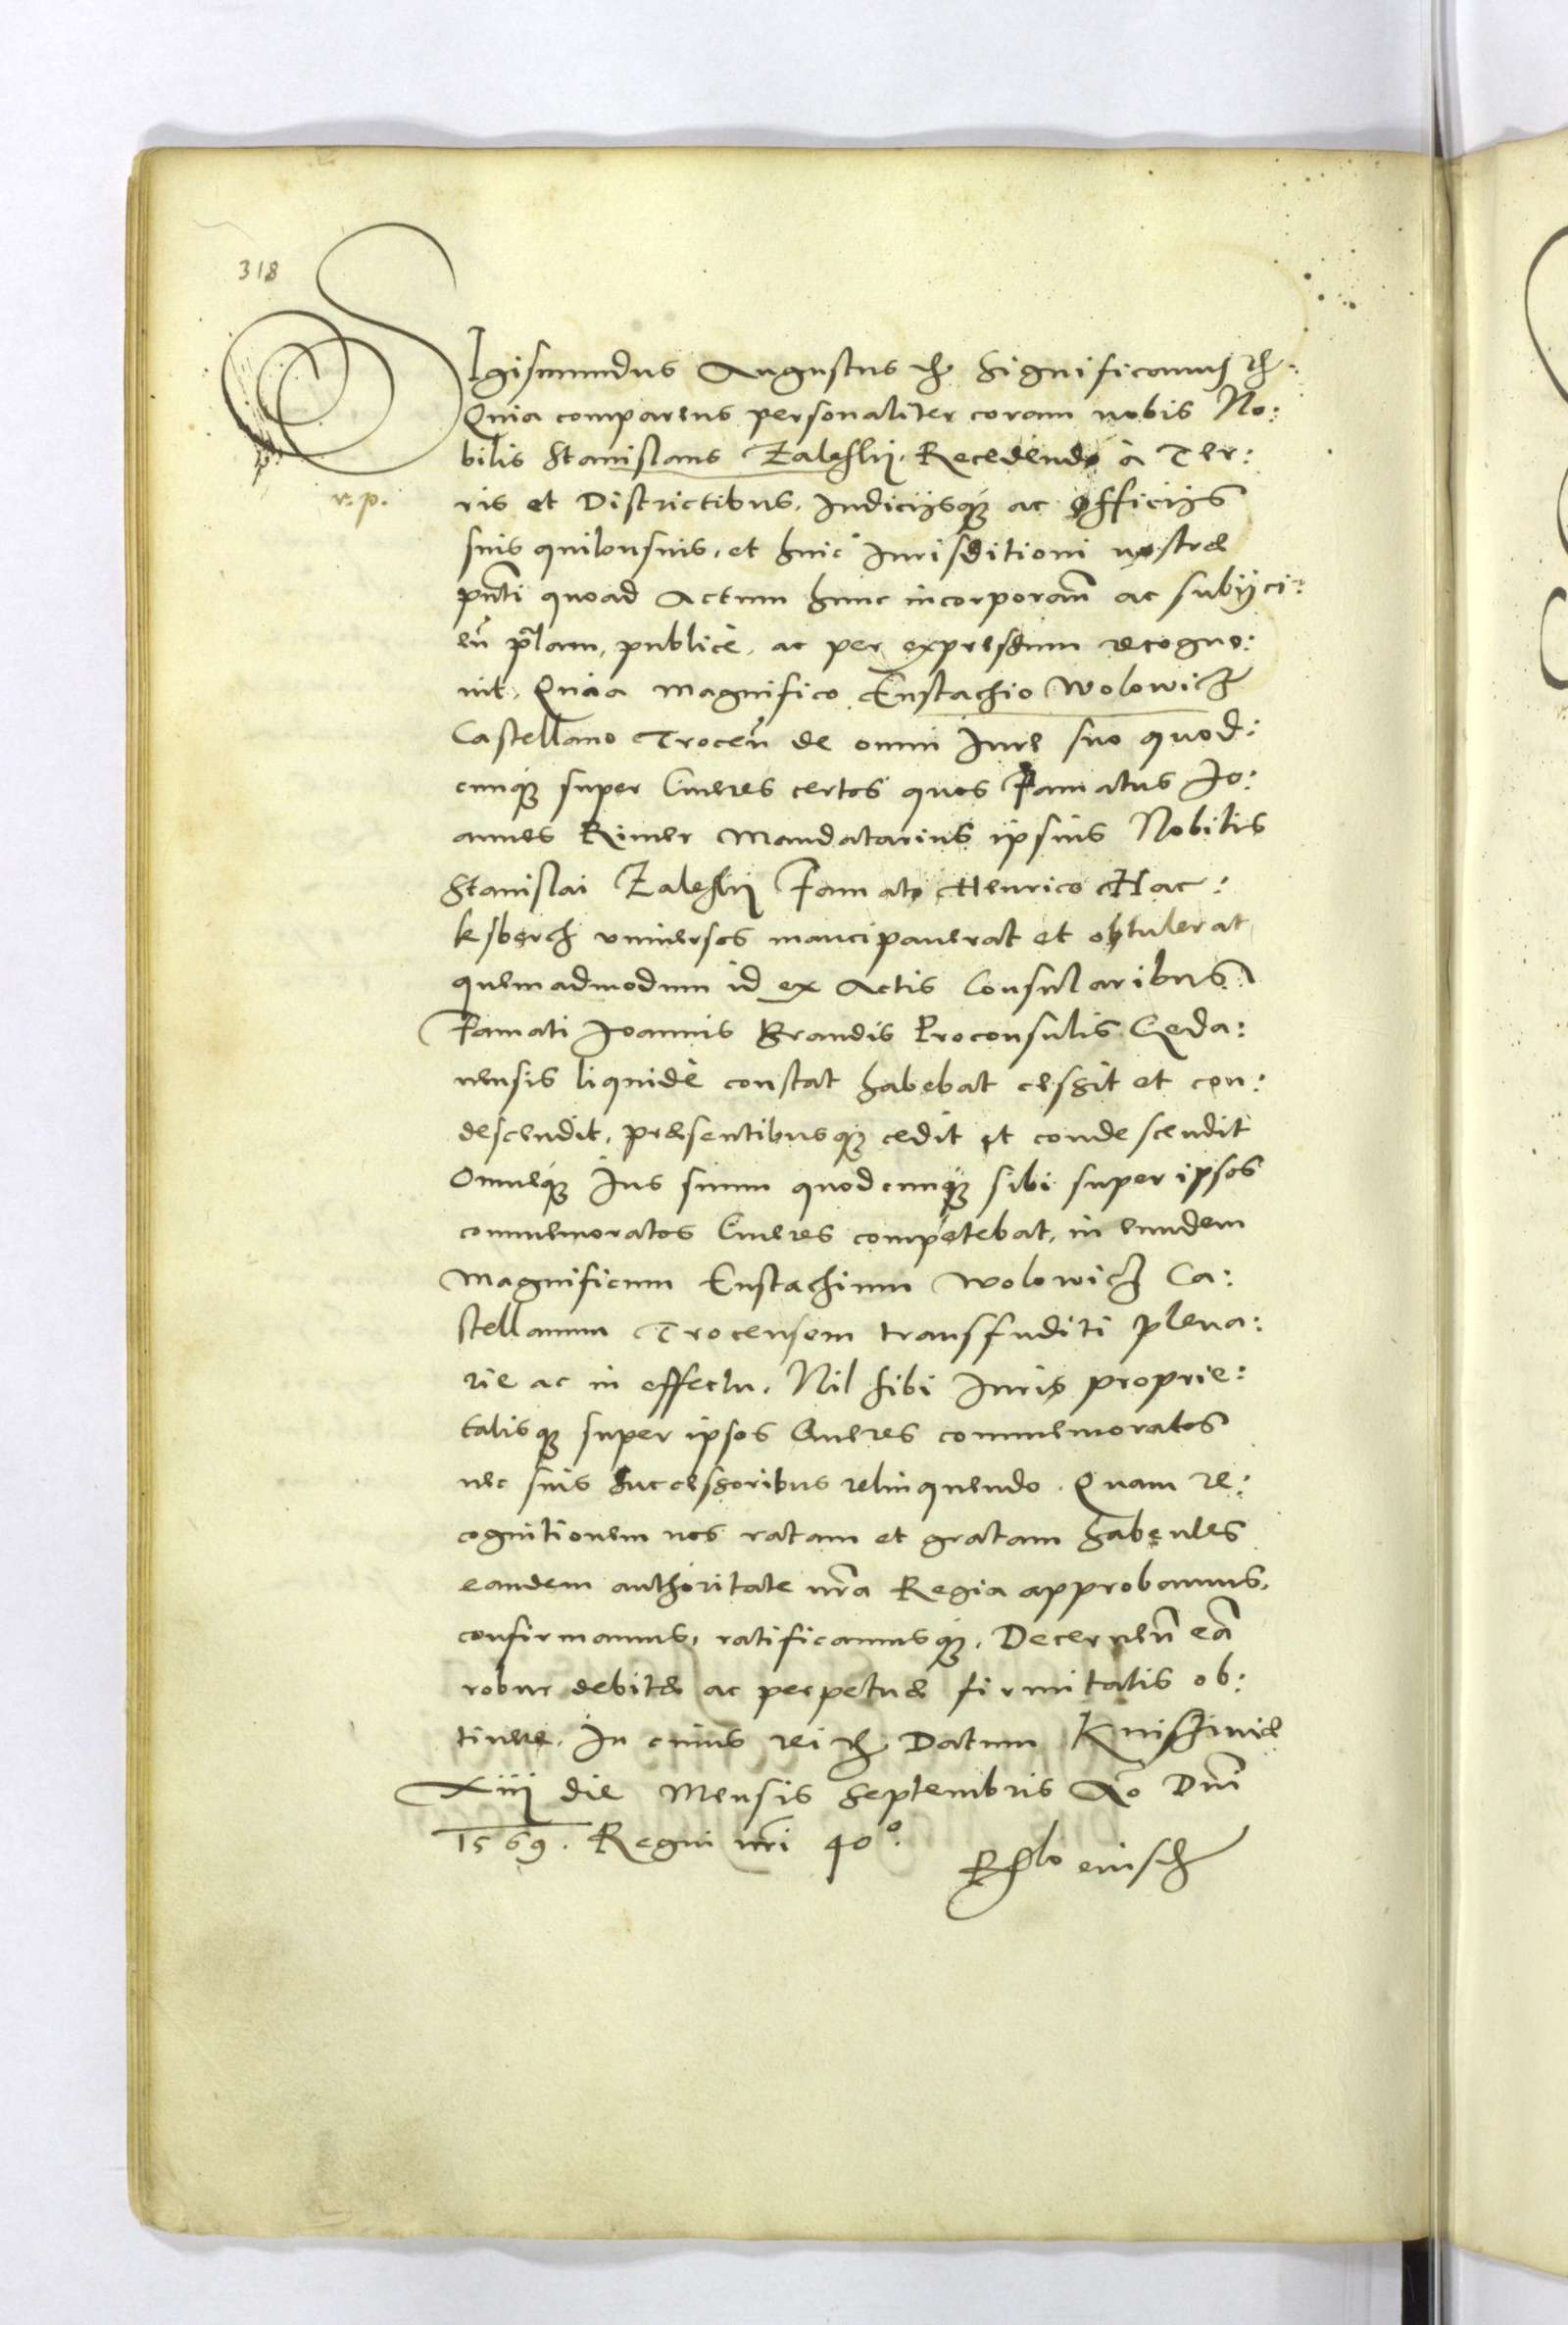 318
SIgismundus Augustus etc Significamus etc:
Quia comparens personaliter coram nobis No:
bilis Stanislaus Zaleskij. Recedendo à Ter:
v. p.
ris et Districtibus, Iudicijsque ac officijs
suis quibusuis, et huic Iurisditioni nostræ
pñti quoad Actum hunc incorporañ ac subijci:
eñ palam, publicè, ac per expressum recogno:
uit, Quia Magnifico Eustachio Wolowicz
Castellano Troceñ de omni Iure suo quod:
cunque super Cineres certos quos Famatus Jo:
annes Rimer Mandatarius ipsius Nobilis
Stanislai Zaleskij Famato Henrico Hac:
ksberch vniuersos mancipauerat et obtulerat
quemadmodum id ex Actis Consularibus
Famati Joannis Brandis Proconsulis Geda:
nensis liquidè constat habebat cessit et con:
descendit, præsentibusque cedit et condescendit
Omneque Ius suum quodcunque sibi super ipsos
commemoratos Cineres competebat, in eundem
Magnificum Eustachium Wolowicz Ca:
stellanum Trocensem transfudit plena:
rie ac in effectu, Nil sibi Iuris proprie:
tatisque super ipsos Cineres commemoratos
nec suis Successoribus relinquendo. Quam re:
cognitionem nos ratam et gratam habentes
eandem authoritate nra Regia approbamus,
confirmamus, ratificamusque, Decerneñ eã
robur debitæ ac perpetuæ firmitatis ob:
tinere. In cuius rei etc Datum Knissinæ
Xiij die Mensis Septembris Aõ Dni
1569. Regni nri 40º.